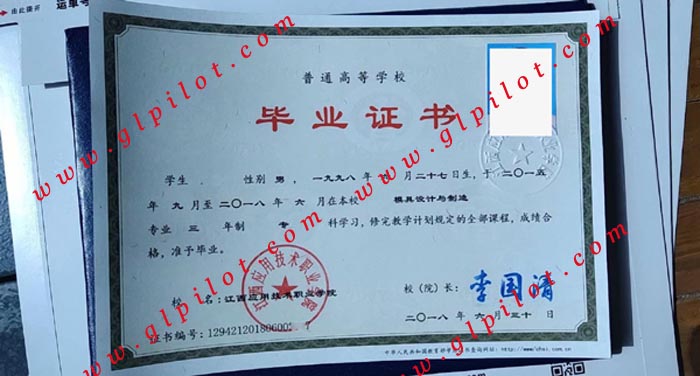 由此撕开
运单号
普通高等学校
毕业证书
学生 性别 男，一九九八年 月二十七日生，于二〇一五
年 九 月至二〇一八年 六 月在本校 模具设计与制造
专业 三 年制 专 科学习，修完教学计划规定的全部课程，成绩合
格，准予毕业。
校 名：江西应用技术职业学院
校（院）长：李国清
二〇一八年 六 月三十日
证书编号：12942120180600
江西应用技术职业学院
www.glpilot.com
www.glpilot.com
www.glpilot.com
www.glpilot.com